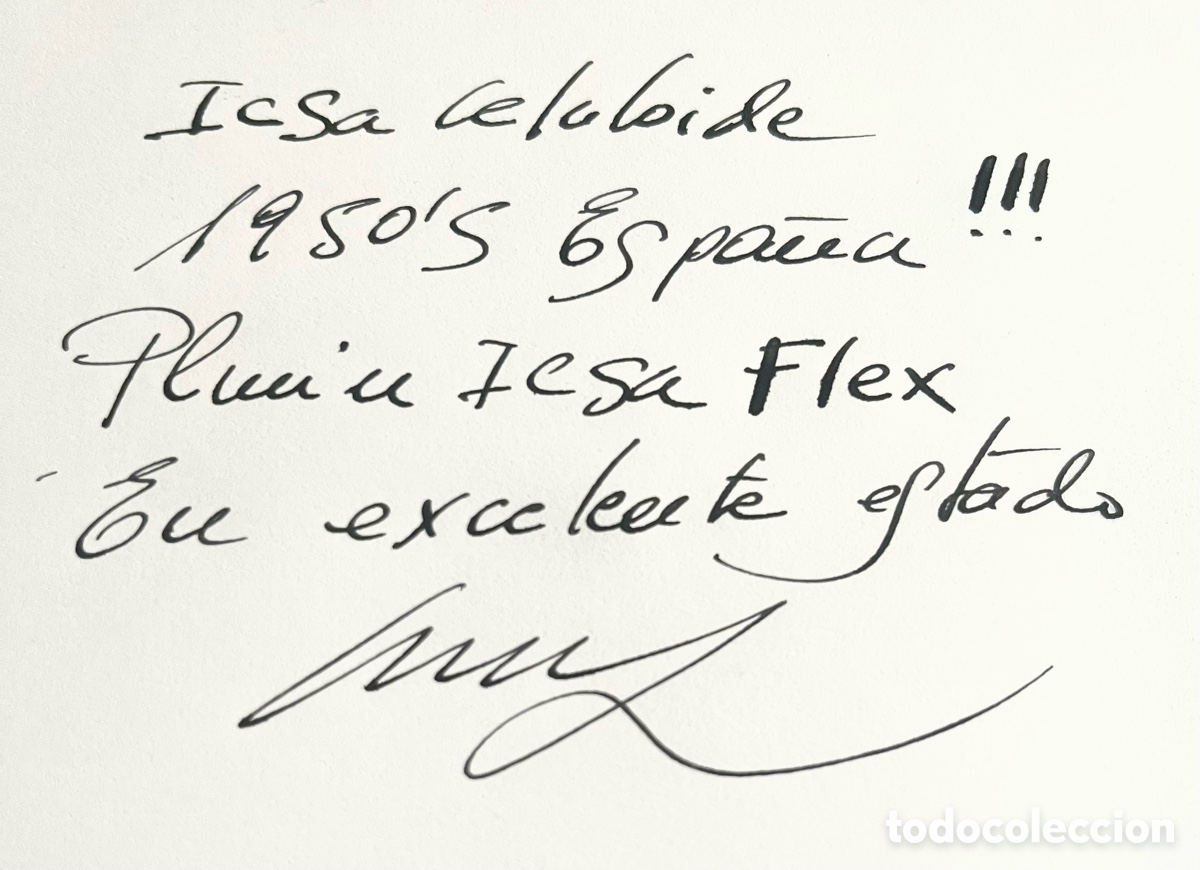 Icsa Celuloide
1950's España !!!
Plumín Icsa Flex
En excelente estado
todocoleccion